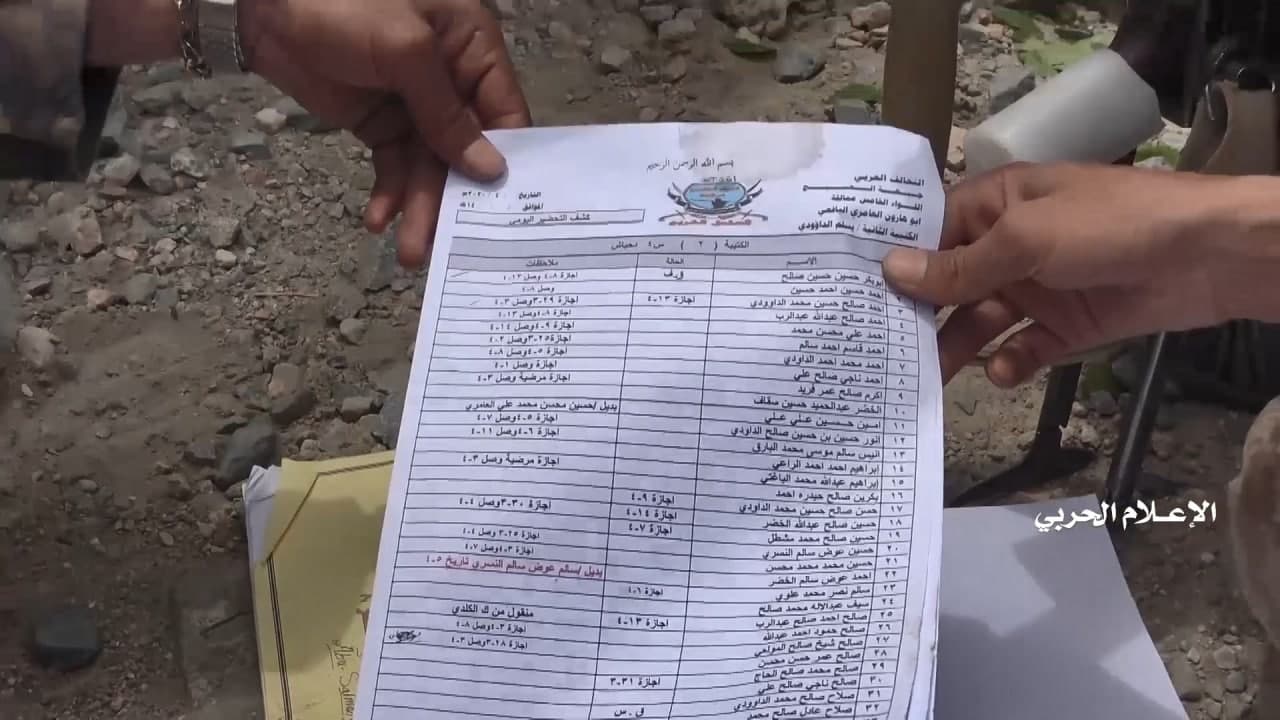 بسم الله الرحمن الرحيم
التحالف العربي
اللواء الخامس عمالقة
ابو هارون العامري اليافعي
الكتيبة الثانية / يسلم الداوودي
التاريخ / ٤ / ٢٠٢٠م
الموافق / / ١٤هـ
كشف التحضير اليومي
الكتيبة ( ٢ ) س٤ نحياش
الاسم الحالة ملاحظات
ابوبكر حسين حسين صالح ق.ف اجازة ٨-٤ وصل ١٣-٤
احمد حسين احمد حسين وصل ٨-٤
٣ احمد صالح حسين محمد الداوودي اجازة ١٣-٤ اجازة ٢٩-٣وصل ٣-٤
٤ احمد صالح عبدالله عبدالرب اجازة ٨-٤وصل ١٣-٤
٥ احمد علي محسن محمد اجازة ٩-٤وصل ١٤-٤
٦ احمد قاسم احمد سالم اجازة ٢٥-٣وصل ٢-٤
٧ احمد محمد احمد الداودي اجازة ٥-٤وصل ٨-٤
٨ احمد ناجي صالح علي اجازة وصل ١-٤
٩ اكرم صالح عمر فريد اجازة مرضية وصل ٣-٤
١٠ الخضر عبدالحميد حسين سقاف
١١ امين حسين علي علي بديل /حسين محسن محمد علي العامري
١٢ انور حسين بن حسين صالح الداودي اجازة ٥-٤وصل ٧-٤
١٣ انيس سالم موسى محمد البارق اجازة ٦-٤وصل ١١-٤
١٤ إبراهيم احمد احمد الراعي
١٥ إبراهيم عبدالله محمد اجازة مرضية وصل ٣-٤
١٦ بكرين صالح حيدره احمد
١٧ حسن صالح حسين محمد الداودي اجازة ٩-٤ اجازة ٣٠-٣وصل ٤-٤
١٨ حسين صالح عبدالله الخضر اجازة ١٤-٤
١٩ حسين صالح محمد مشطل اجازة ٧-٤
٢٠ حسين عوض سالم النسري اجازة ٢٥-٣ وصل ٤-٤
٢١ حسين محمد محمد محسن اجازة ٣-٤وصل ٧-٤
٢٢ احمد عوض سالم الخضر بديل /سالم عوض سالم النسري تاريخ ٥-٤
٢٣ سالم نصر محمد علوي
٢٤ سيف عبدالاله محمد صالح اجازة ٦-٤
٢٥ صالح احمد صالح عبدالرب
٢٦ صالح حمود احمد عبدالله اجازة ١٣-٤ منقول من ك الكلدي
٢٧ صالح شيخ صالح اجازة ٣-٤وصل ٨-٤
٢٨ صالح عمر حسن محسن اجازة ١٨-٣وصل ٣-٤
٢٩ صالح محمد صالح الحاج
٣٠ صالح ناجي صالح علي اجازة ٣١-٣
٣١ صلاح صالح محمد الداوودي
٣٢ صلاح عادل صالح محمد ق.س
الإعلام الحربي
Abu Salman